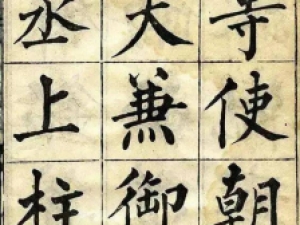 等使朝
夫兼御
丞上柱